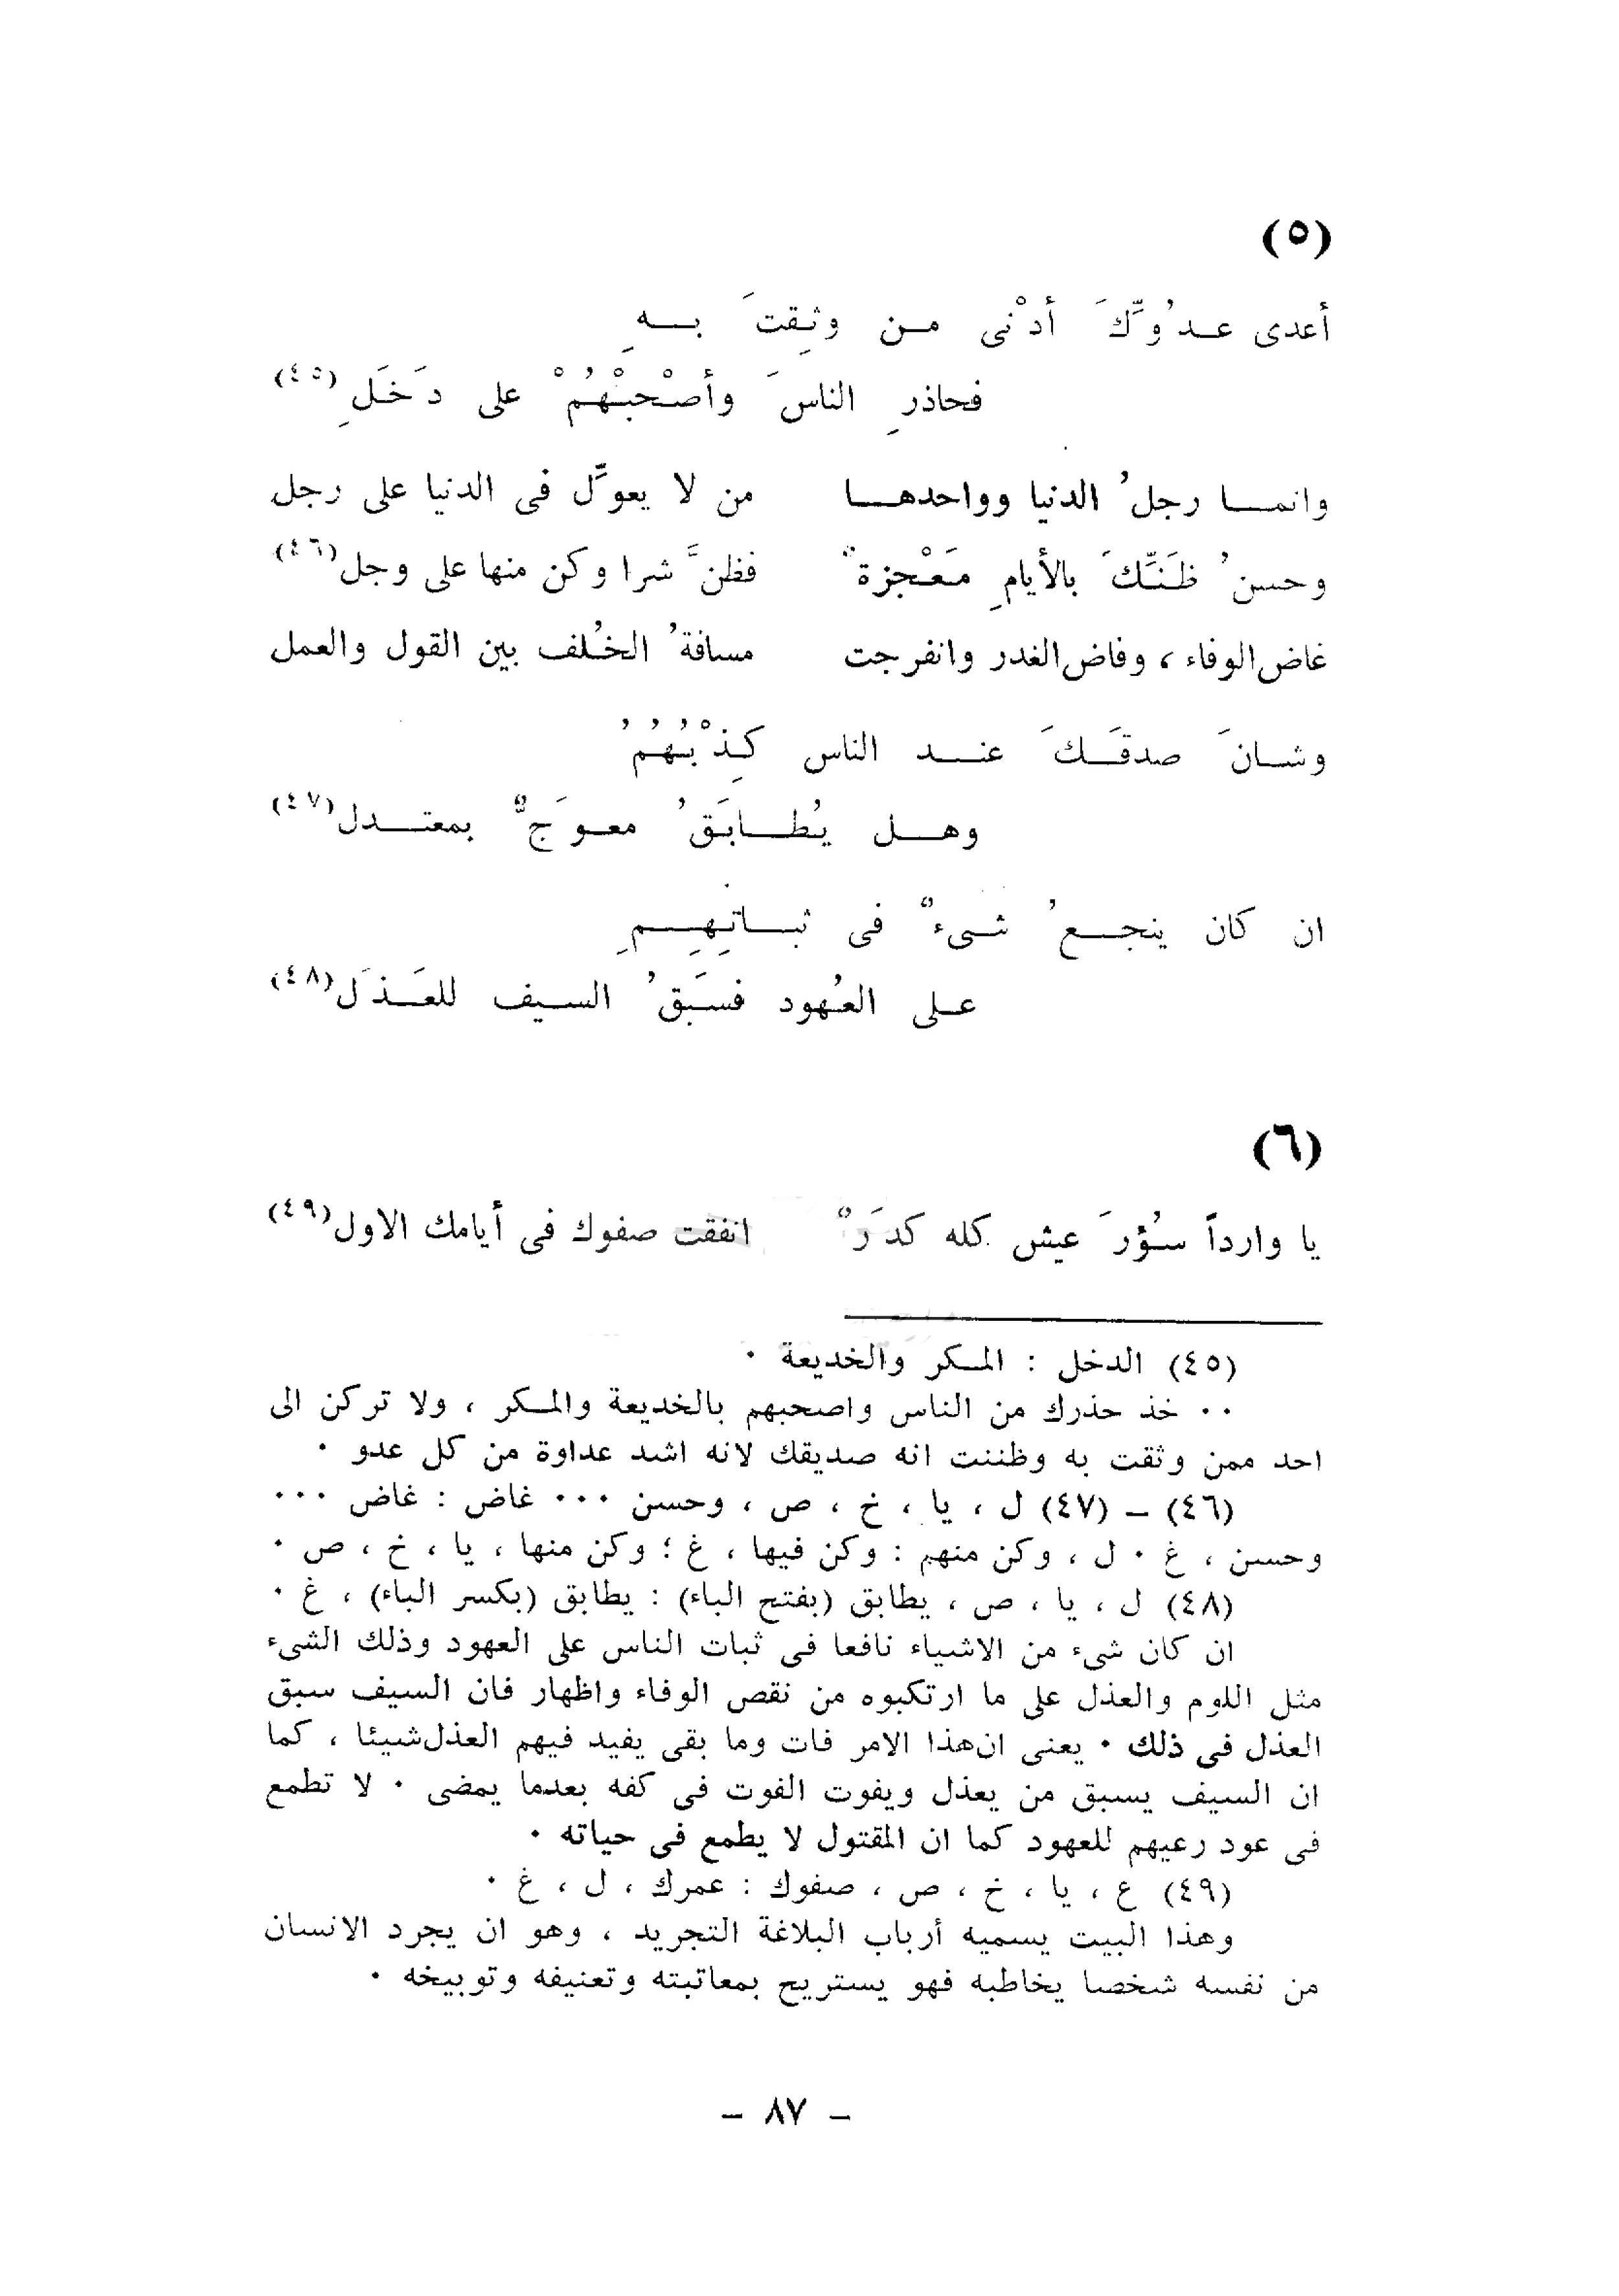 (٥)
أعدى عدُوِّكَ أدْنى من وثِقتَ بهِ
فحاذرِ الناسَ وأصْحبْهُمْ على دَخَلِ(٤٥)
وانما رجلُ الدنيا وواحدها من لا يعوِّل فى الدنيا على رجل
وحسنُ ظَنِّكَ بالأيامِ مَعْجزةٌ فظنَّ شرا وكن منها على وجل(٤٦)
غاض الوفاء ، وفاض الغدر وانفرجت مسافةُ الخُلف بين القول والعمل
وشانَ صدقَكَ عند الناس كِذْبُهُمُ
وهل يُطابَقُ معوَجٌّ بمعتدل(٤٧)
ان كان ينجعُ شىءٌ فى ثباتِهِمِ
على العُهود فسَبَقُ السيف للعَذَل(٤٨)
(٦)
يا وارداً سُؤرَ عيش كله كدَرٌ انفقت صفوك فى أيامك الاول(٤٩)
(٤٥) الدخل : المكر والخديعة ٠
٠٠ خذ حذرك من الناس واصحبهم بالخديعة والمكر ، ولا تركن الى
احد ممن وثقت به وظننت انه صديقك لانه اشد عداوة من كل عدو ٠
(٤٦) – (٤٧) ل ، يا ، خ ، ص ، وحسن ٠٠٠ غاض : غاض ٠٠٠
وحسن ، غ ٠ ل ، وكن منهم : وكن فيها ، غ ؛ وكن منها ، يا ، خ ، ص ٠
(٤٨) ل ، يا ، ص ، يطابق (بفتح الباء) : يطابق (بكسر الباء) ، غ ٠
ان كان شىء من الاشياء نافعا فى ثبات الناس على العهود وذلك الشىء
مثل اللوم والعذل على ما ارتكبوه من نقص الوفاء واظهار فان السيف سبق
العذل فى ذلك ٠ يعنى ان هذا الامر فات وما بقى يفيد فيهم العذل شيئا ، كما
ان السيف يسبق من يعذل ويفوت الفوت فى كفه بعدما يمضى ٠ لا تطمع
فى عود رعيهم للعهود كما ان المقتول لا يطمع فى حياته ٠
(٤٩) ع ، يا ، خ ، ص ، صفوك : عمرك ، ل ، غ ٠
وهذا البيت يسميه أرباب البلاغة التجريد ، وهو ان يجرد الانسان
من نفسه شخصا يخاطبه فهو يستريح بمعاتبته وتعنيفه وتوبيخه ٠
– ٨٧ –